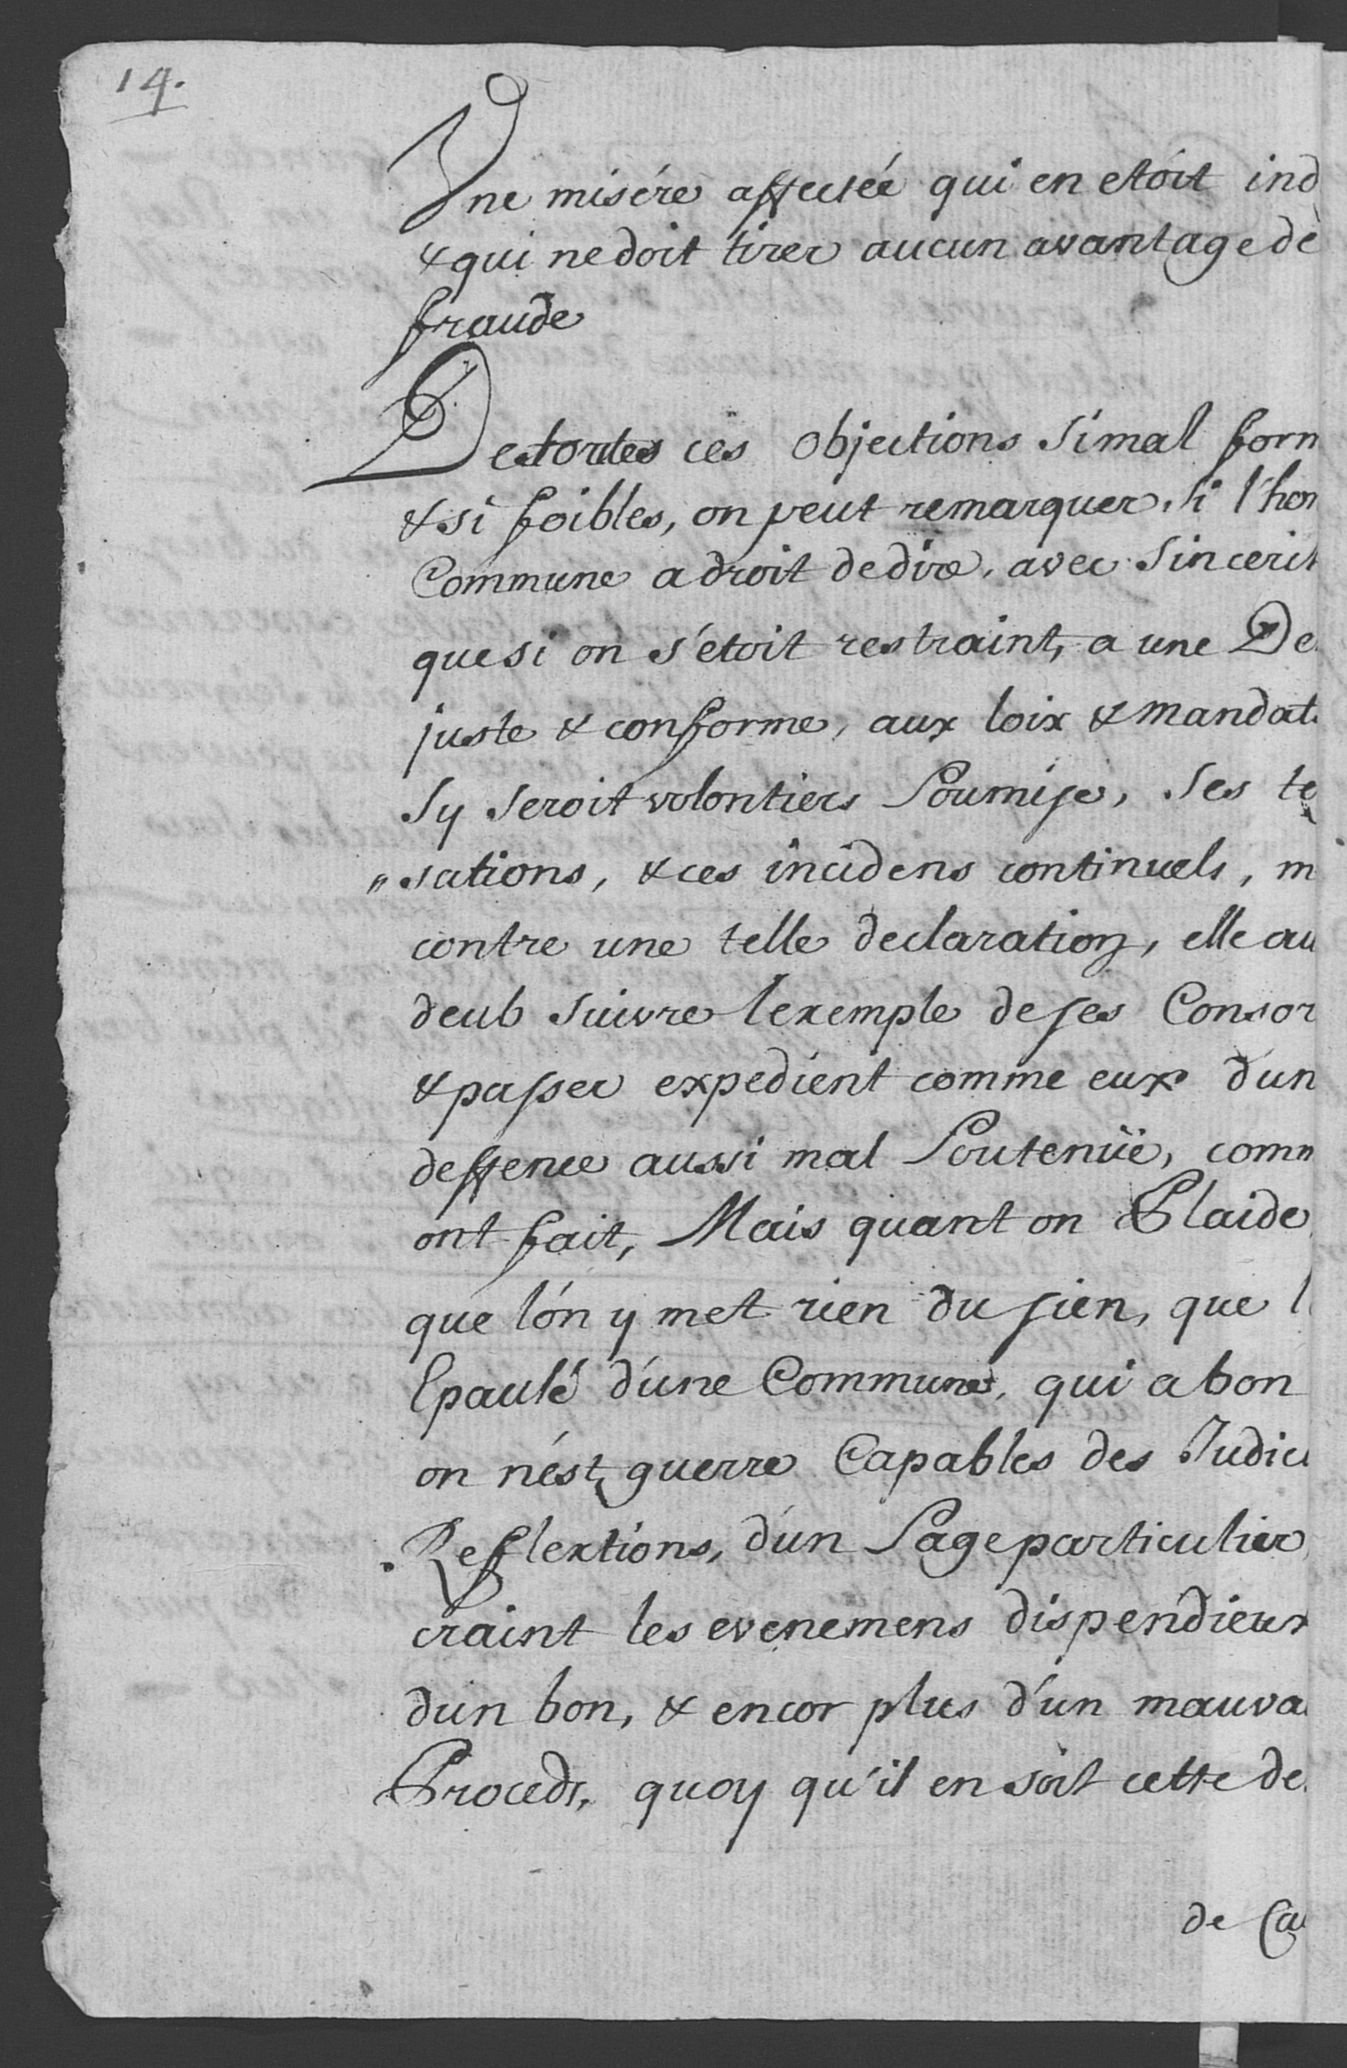 14.
Une misére affectéé qui en etóit ind
& qui ne doit tirer aucun avantage de
fraude
De toutes ces objections si mal form
& si foibles, on peut remarquer, si l'hom
Commune a droit de dire, avec sincerit
que si on s'etoit restraint, a une De
juste & conforme, aux loix & mandat
sy seroit volontiers soumise, ses te
"sations, & ces incidens continuels, m
contre une telle declaration, elle au
deub suivre lexemple de ses Consor
& passer expedient comme eux d'un
deffence aussi mal soutenüe, comm
ont fait, Mais quant on Plaide
que lón y met rien du sien, que l
Epaulé d'une Commune, qui a bon
on nést guerre Capables des Judici
Reflextions, d'un sage particulier
craint les evenemens dispendieux
d'un bon, & encor plus d'un mauva
Procedt, quoy qu'il en soit cette de
de Ca